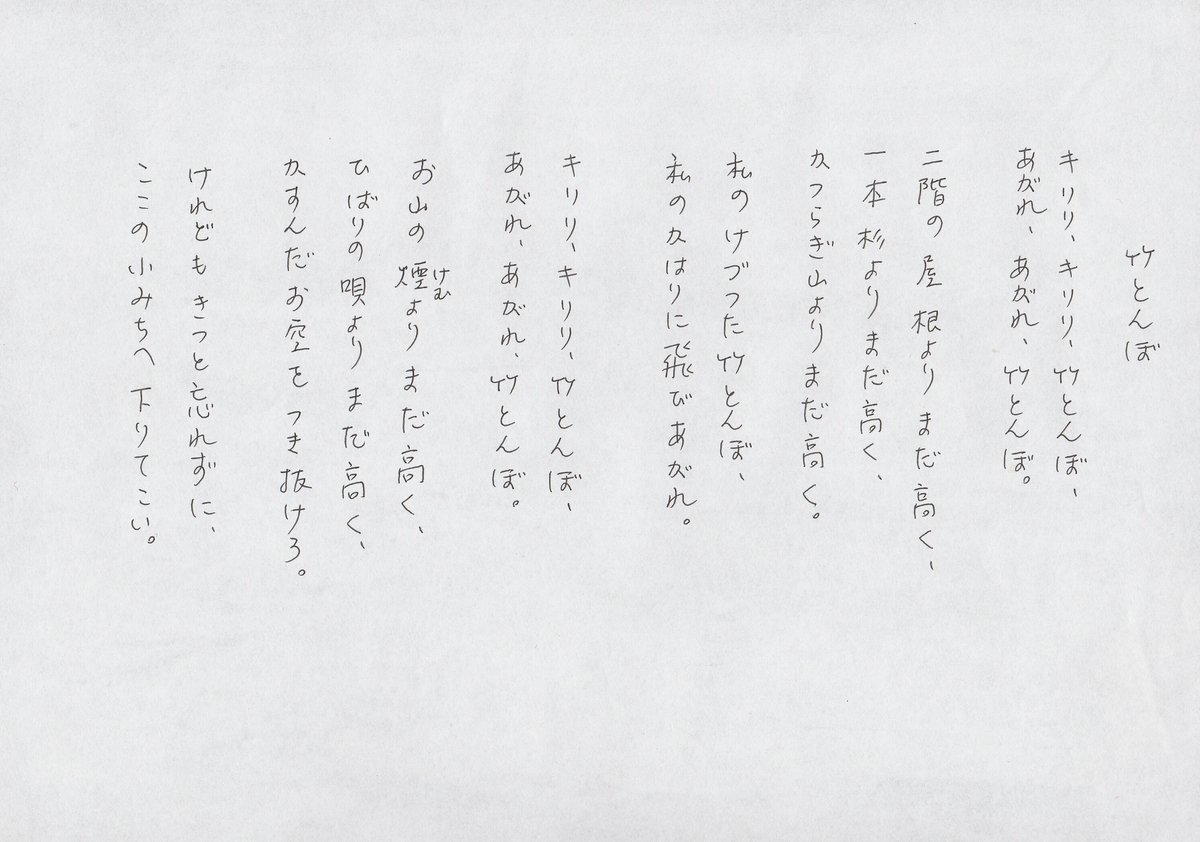 竹とんぼ
キリリ、キリリ、竹とんぼ、
あがれ、あがれ、竹とんぼ。
二階の屋根よりまだ高く、
一本杉よりまだ高く、
かつらぎ山よりまだ高く。
私のけづつた竹とんぼ、
私のかはりに飛びあがれ。
キリリ、キリリ、竹とんぼ、
あがれ、あがれ、竹とんぼ。
お山の煙よりまだ高く、
けむ
ひばりの唄よりまだ高く、
かすんだお空をつき抜けろ。
けれどもきつと忘れずに、
ここの小みちへ下りてこい。